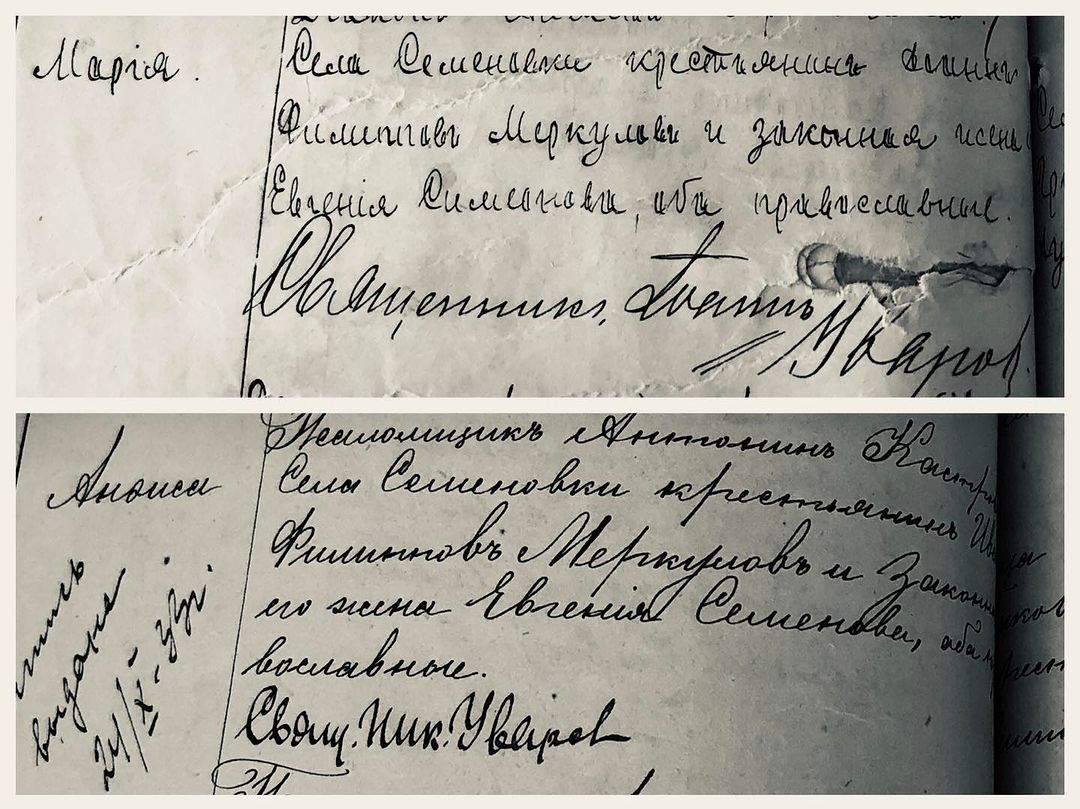 Марія.
Села Семеновки крестьянинъ Іоаннъ
Филипповъ Меркуловъ и законная жена
Евгенія Симеонова, оба православные.
Священникъ Іоаннъ
Уваровъ
Псаломщикъ Антонинъ
Анѳиса
Села Семеновки крестьянинъ
Филипповъ Меркуловъ и
его жена Евгенія Семенова, оба
вославные.
Свящ. Ник. Уваровъ
выдана
24/XI-33г.